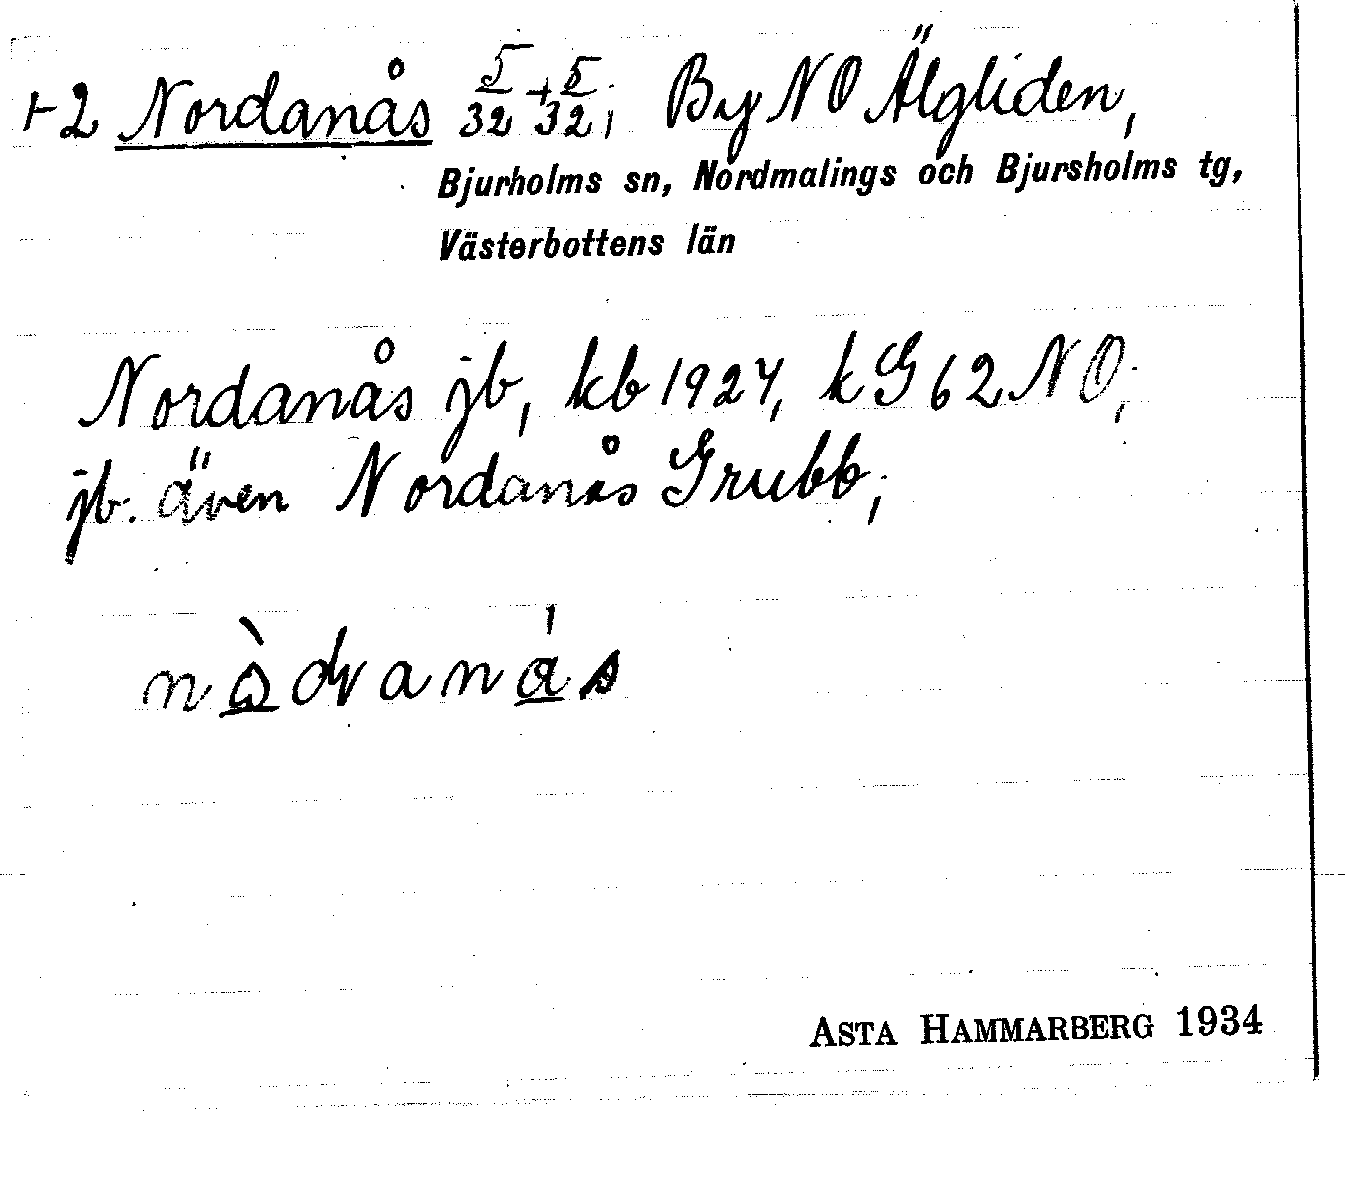 +2 Nordanås 5/32 + 5/32; By NO Älgliden,
Bjurholms sn, Nordmalings och Bjursholms tg,
Västerbottens län
Nordanås jb, kb 1927, kG 62 NO;
jb. även Nordanås Grubb;
ASTA HAMMARBERG 1934